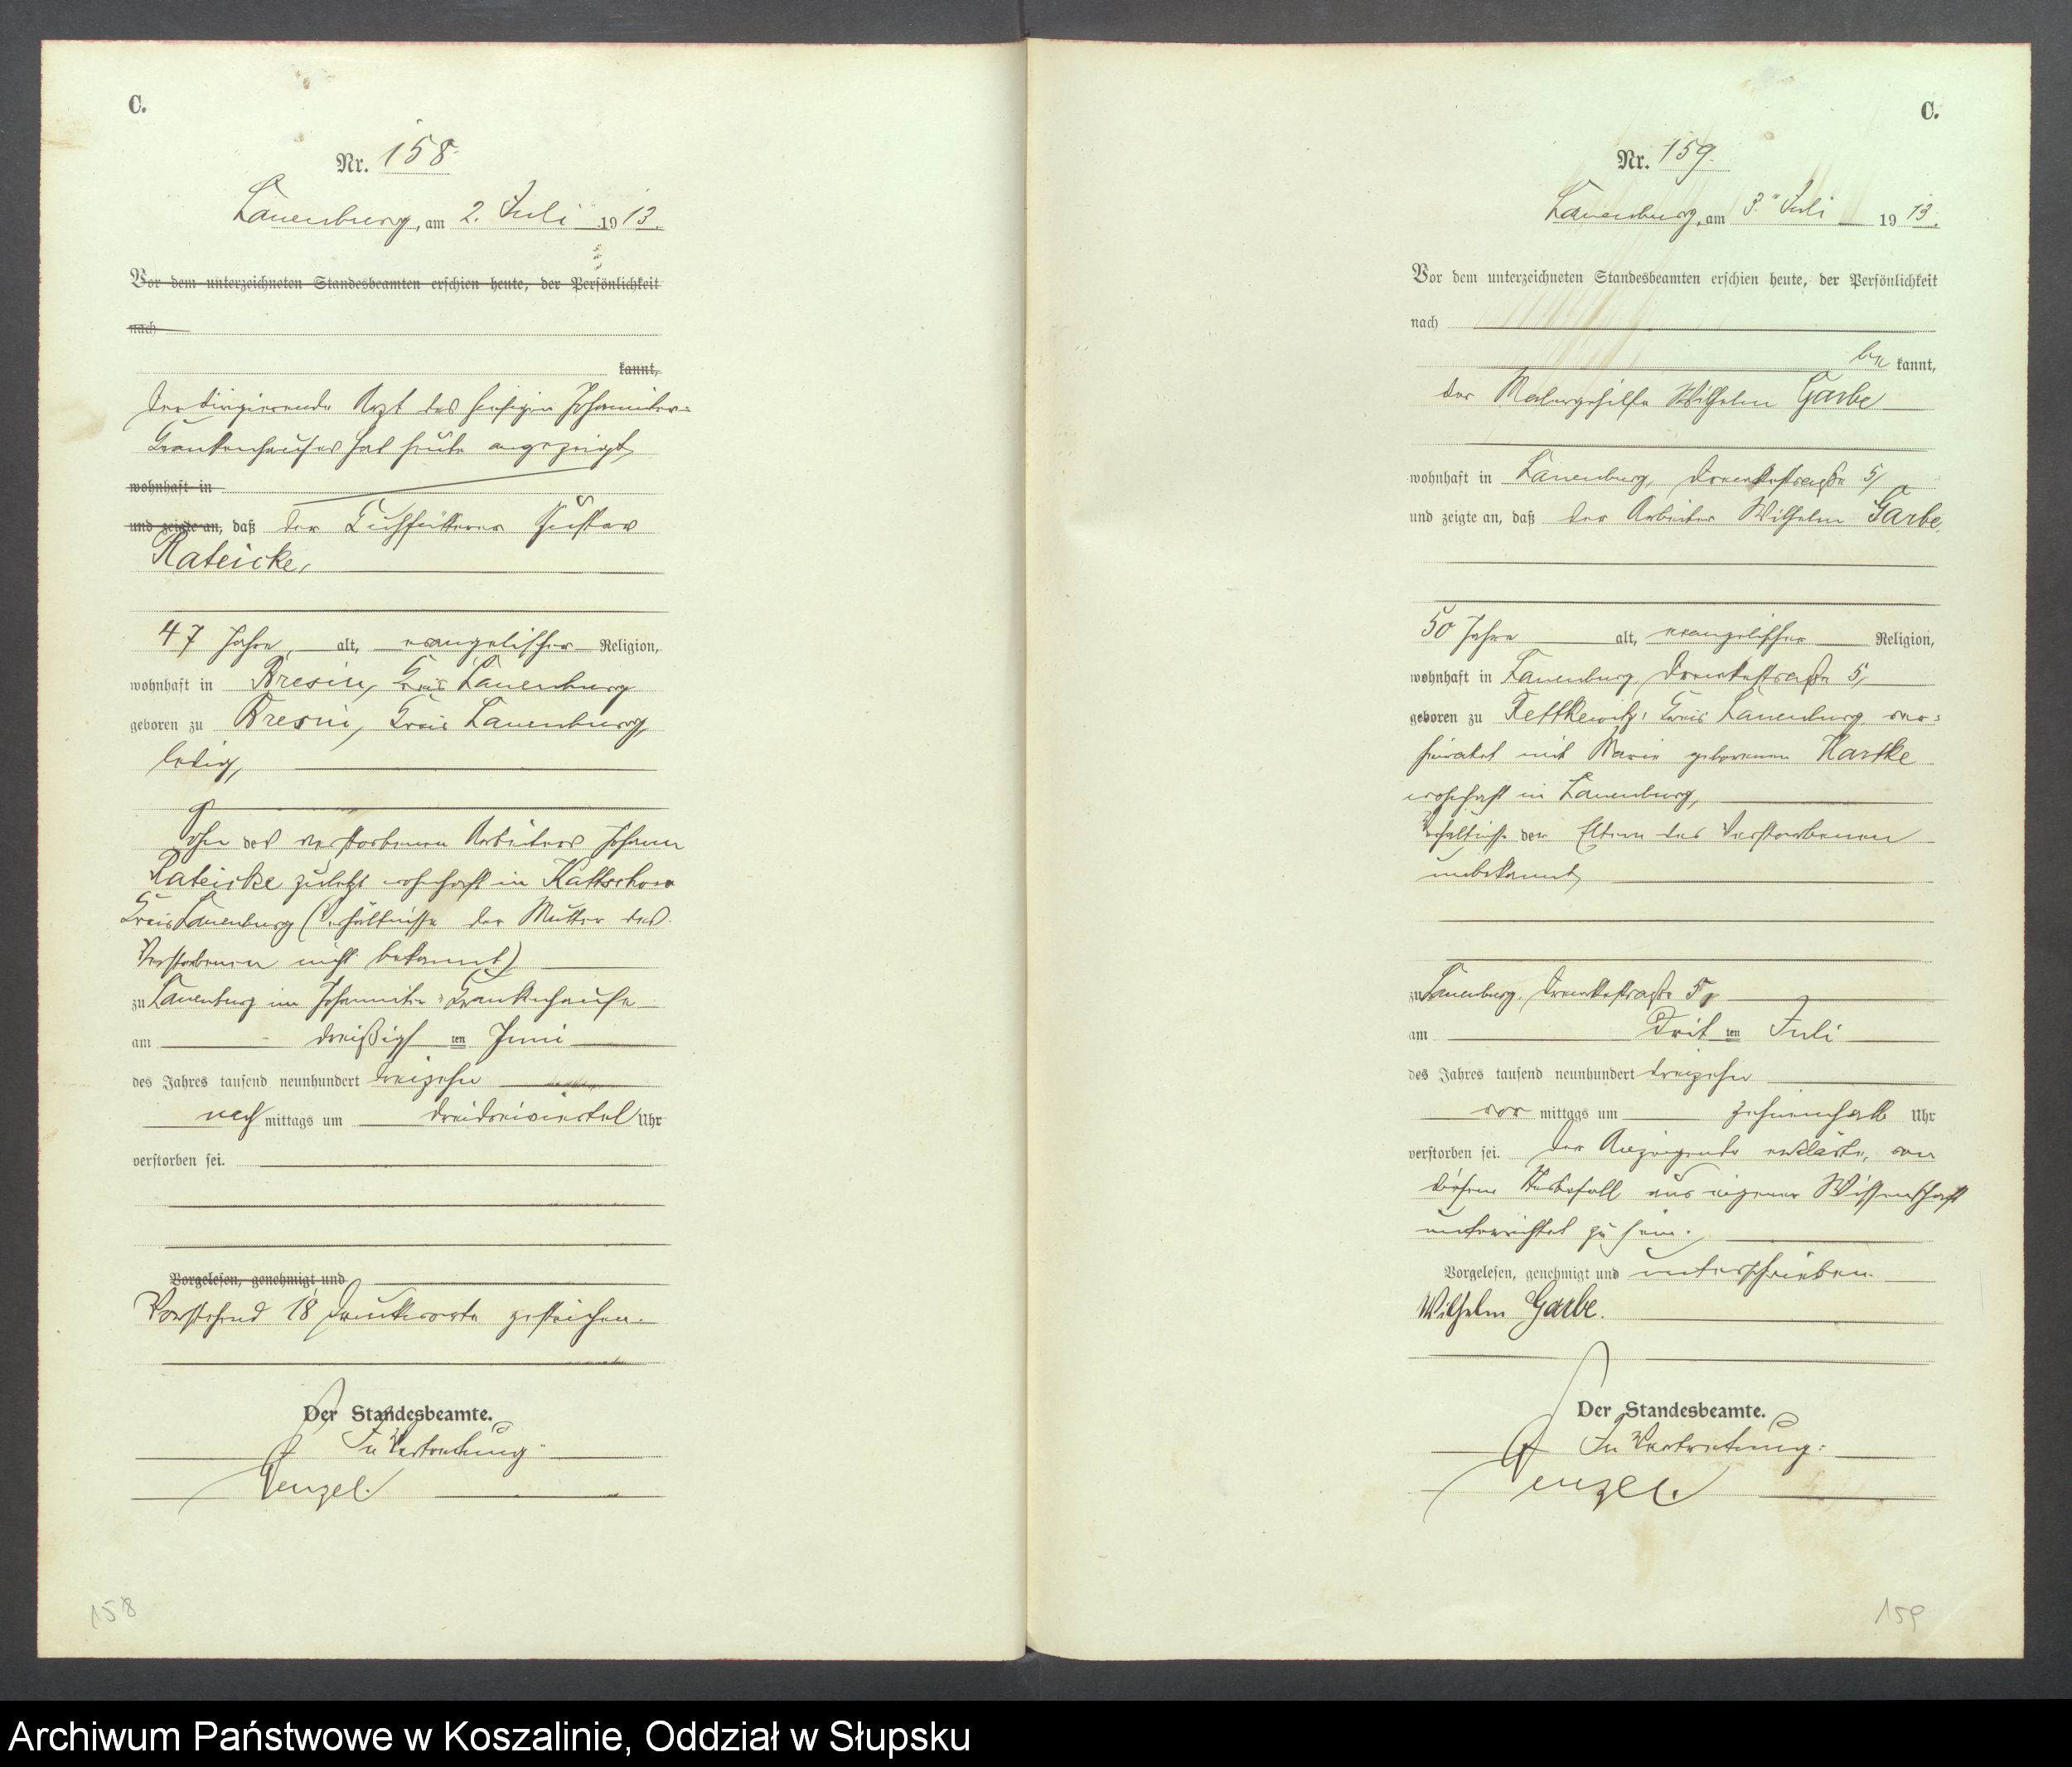 C.
Nr. 158.
Lauenburg, am 2. Juli 1913.
Vor dem unterzeichneten Standesbeamten erschien heute, der Persönlichkeit
nach
kannt,
Der dirigierende Arzt des hiesigen Johanniter-
Krankenhauses hat heute angezeigt,
wohnhaft in
und zeigte an, daß der Kuhfütterer Gustav
Rateicke,
47 Jahre, alt, evangelischer Religion,
wohnhaft in Bresin, Kreis Lauenburg
geboren zu Bresin, Kreis Lauenburg,
ledig,
Sohn des verstorbenen Arbeiters Johann
Rateicke zuletzt wohnhaft in Kattschow
Kreis Lauenburg (Verhältnisse der Mutter des
Verstorbenen nicht bekannt)
zu Lauenburg im Johanniter-Krankenhause
am dreißigsten Juni
des Jahres tausend neunhundert dreizehn
nachmittags um dreidreiviertel Uhr
verstorben sei.
Vorgelesen, genehmigt und
Vorstehend 18 Druckworte gestrichen.
Der Standesbeamte.
In Vertretung:
Wenzel.
158
C.
Nr. 159.
Lauenburg, am 3. Juli 1913.
Vor dem unterzeichneten Standesbeamten erschien heute, der Persönlichkeit
nach
bekannt,
der Malergehilfe Wilhelm Garbe
wohnhaft in Lauenburg, 5,
und zeigte an, daß der Arbeiter Wilhelm Garbe,
50 Jahre alt, evangelischer Religion,
wohnhaft in Lauenburg, 5,
geboren zu Fettkewitz, Kreis Lauenburg, ver-
heiratet mit Marie geborenen Hartke
wohnhaft in Lauenburg,
Verhältnisse der Eltern des Verstorbenen
unbekannt,
zu Lauenburg, 5,
am dritten Juli
des Jahres tausend neunhundert dreizehn
vormittags um zehneinhalb Uhr
verstorben sei. Der Anzeigende erklärte, von
diesem Sterbefall aus eigener Wissenschaft
unterrichtet zu sein.
Vorgelesen, genehmigt und unterschrieben.
Wilhelm Garbe.
Der Standesbeamte.
In Vertretung:
Wenzel.
159
Archiwum Państwowe w Koszalinie, Oddział w Słupsku